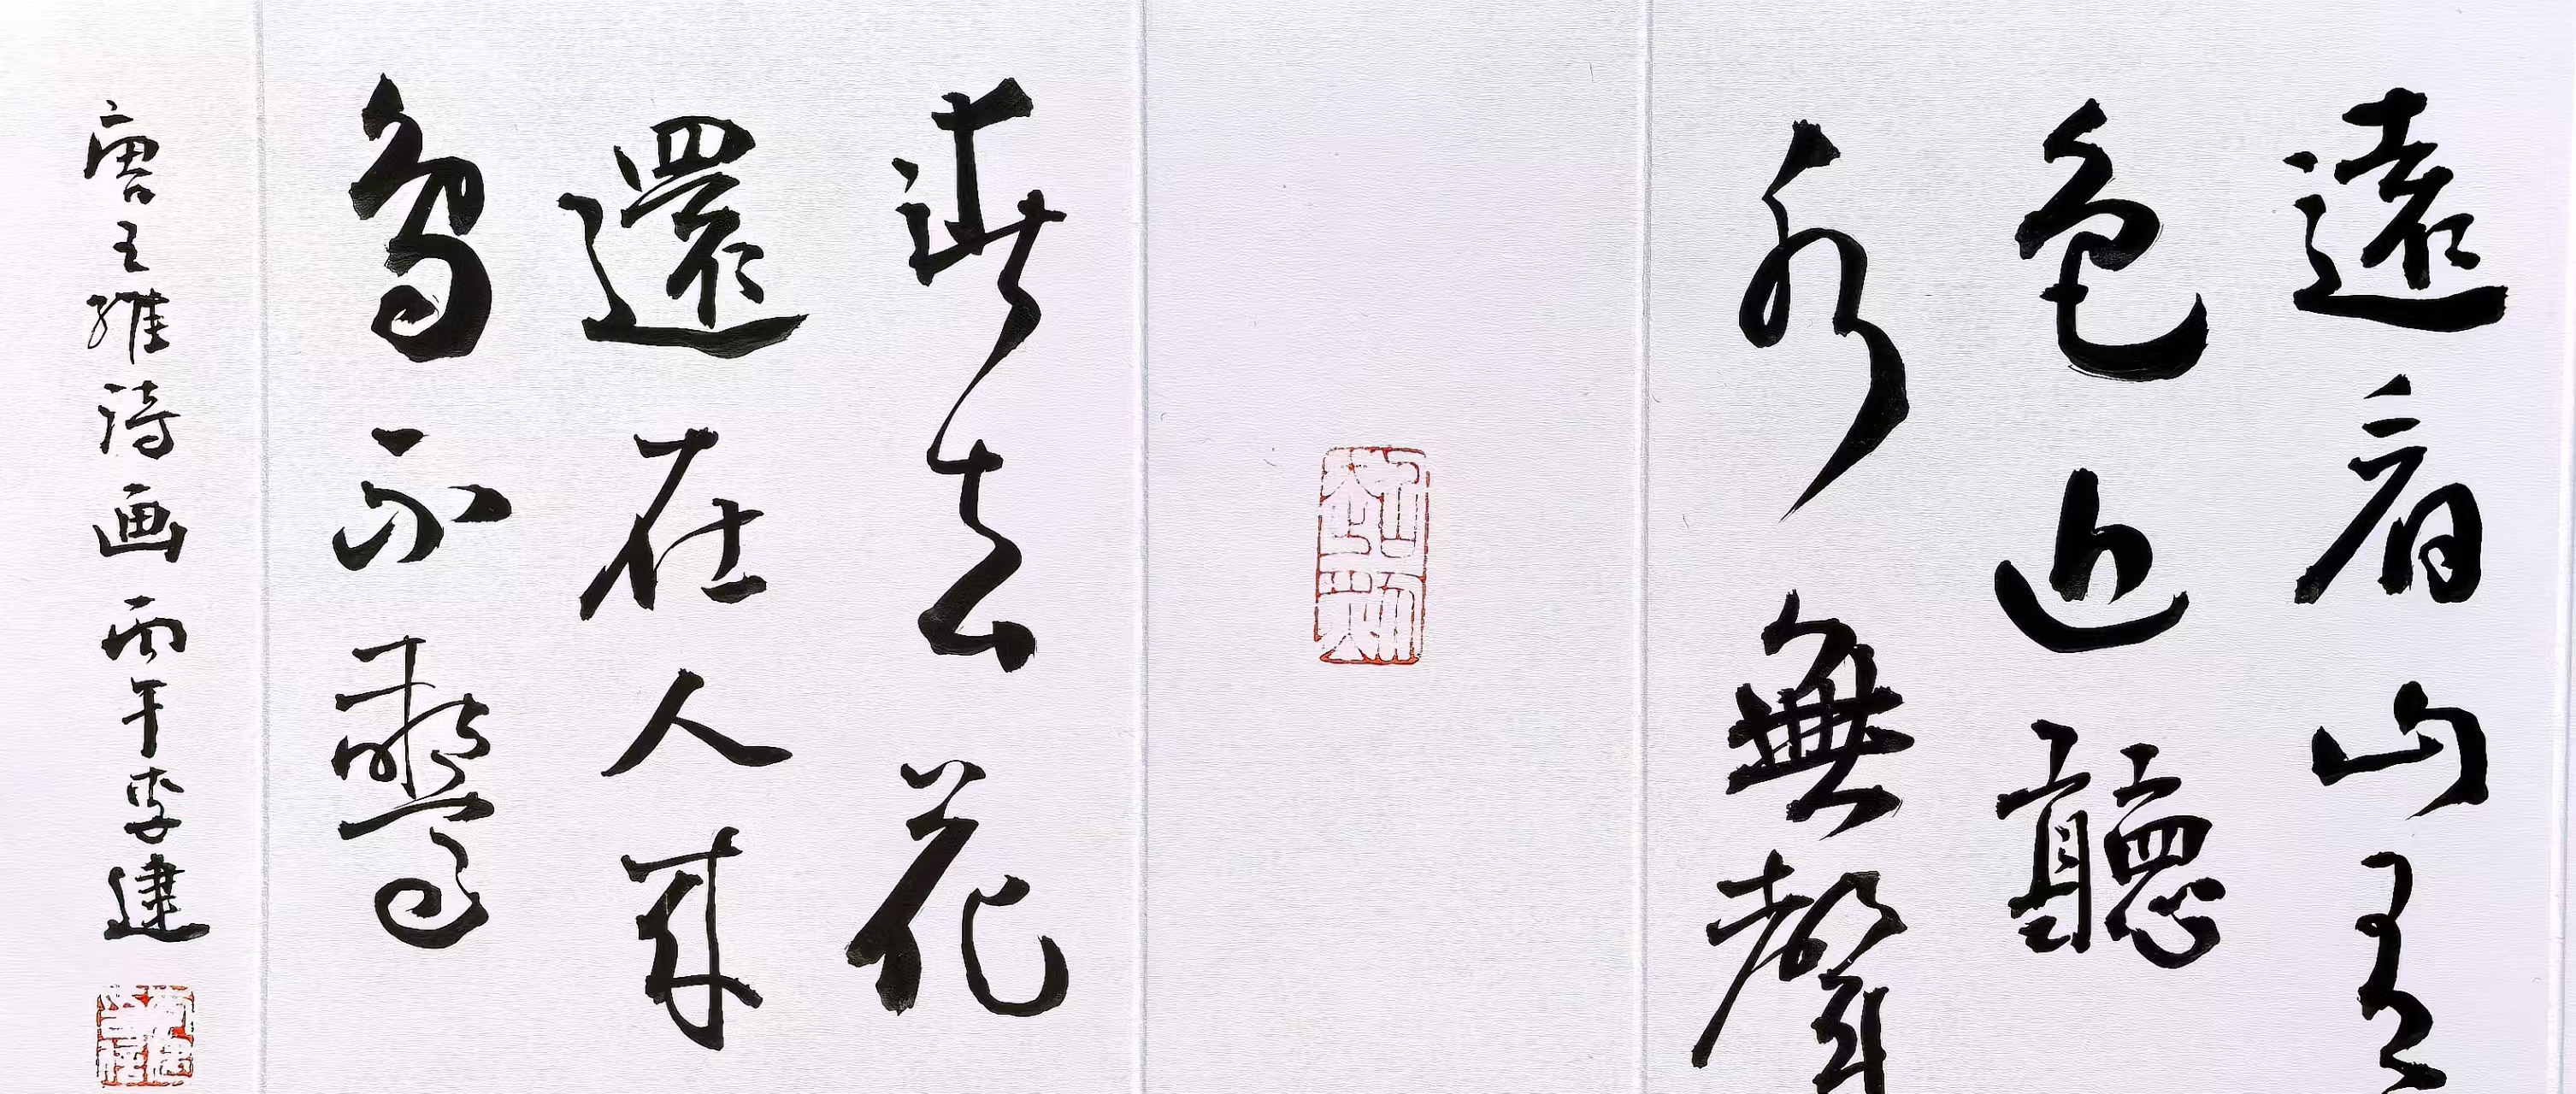 遠看山有
色近聽
水無聲
春去花
還在人來
鳥不驚
唐王維詩画丙午李建